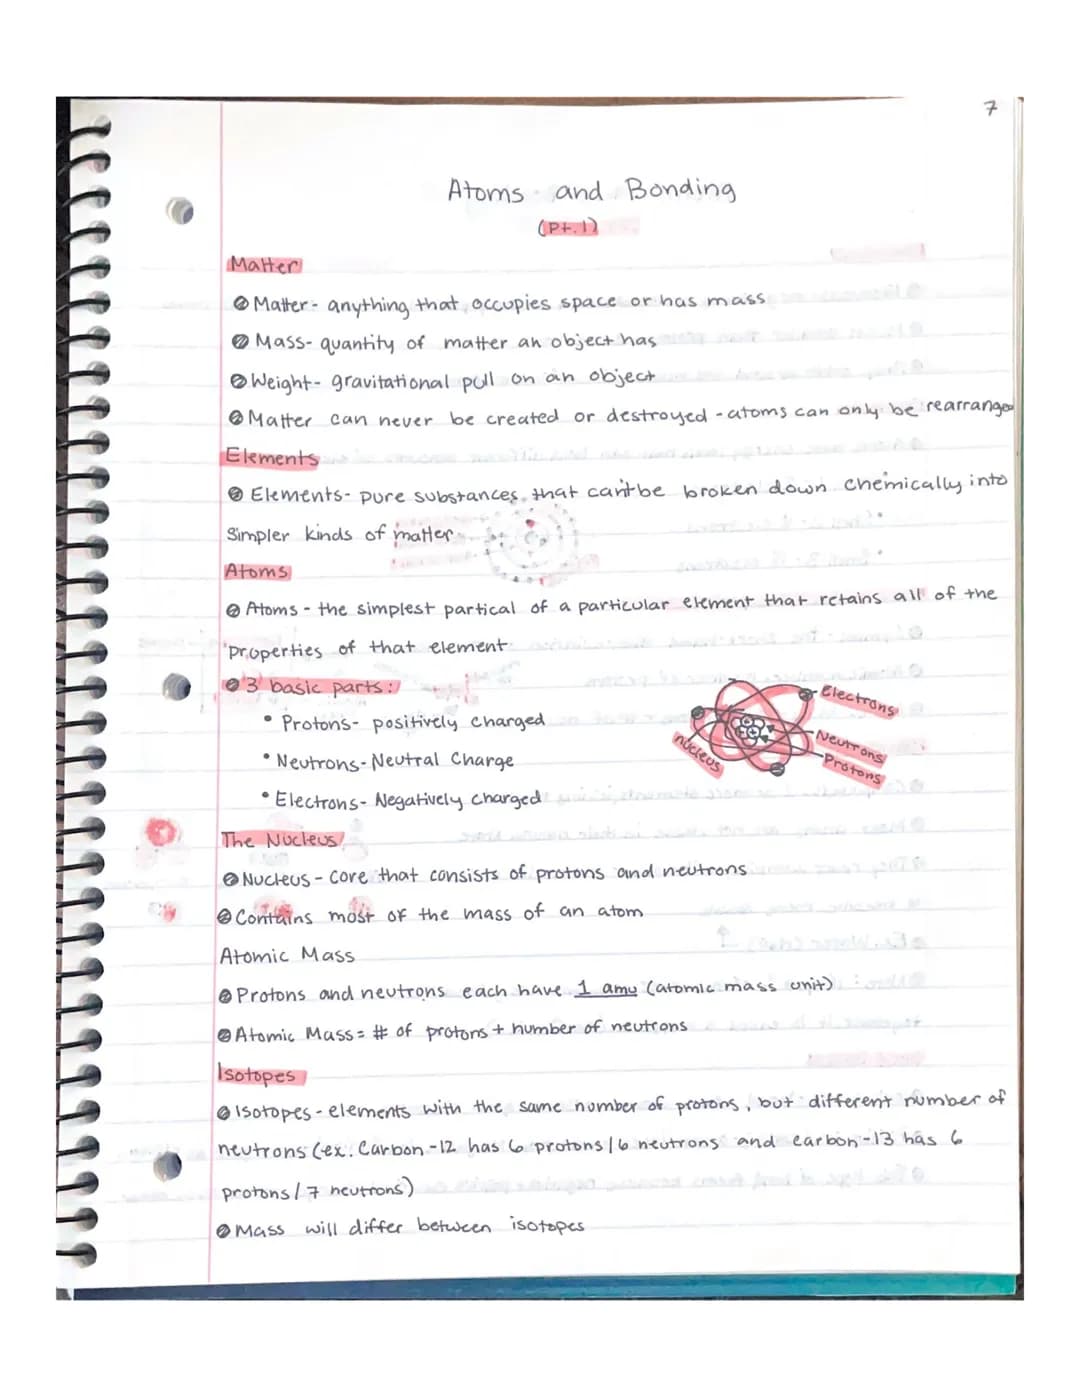 7
Atoms and Bonding
(Pt. 1)
Matter
Matter - anything that occupies space or has mass
Mass- quantity of matter an object has
Weight- gravitational pull on an object
Matter can never be created or destroyed - atoms can only be rearrange
Elements
Elements- pure substances that can't be broken down chemically into
simpler kinds of matter
Atoms
Atoms - the simplest partical of a particular element that retains all of the
properties of that element
3 basic parts:
• Protons- positively charged
• Neutrons- Neutral Charge
• Electrons- Negatively charged
Electrons
Neutrons
Protons
nucleus
The Nucleus
Nucleus - core that consists of protons and neutrons
Contains most of the mass of an atom
Atomic Mass
Protons and neutrons each have 1 amu (atomic mass unit)
Atomic Mass = # of protons + number of neutrons
Isotopes
Isotopes - elements with the same number of protons, but different number of
neutrons (ex: Carbon-12 has 6 protons/6 neutrons and carbon-13 has 6
protons/7 neutrons)
Mass will differ between isotopes